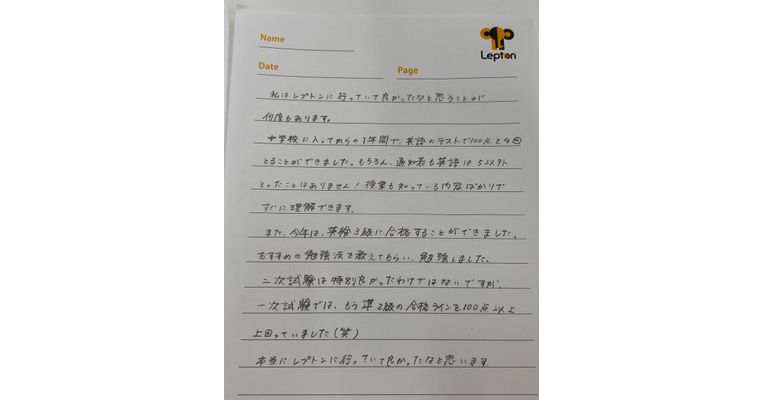 Name
Lepton
Date
Page
私はレプトンに行っていて良かったなと思うことが
何度もあります。
中学校に入ってからの1年間で、英語のテストで100点を4回
とることができました。もちろん、通知表も英語は5以外
とったことはありません！授業も知っている内容ばかりで
すぐに理解できます。
また、今年は、英検3級に合格することができました。
おすすめの勉強法を教えてもらい、勉強しました。
二次試験は特別良かったわけではないですが、
一次試験では、もう準2級の合格ラインを100点以上
上回っていました(笑)
本当にレプトンに行っていて良かったなと思います.